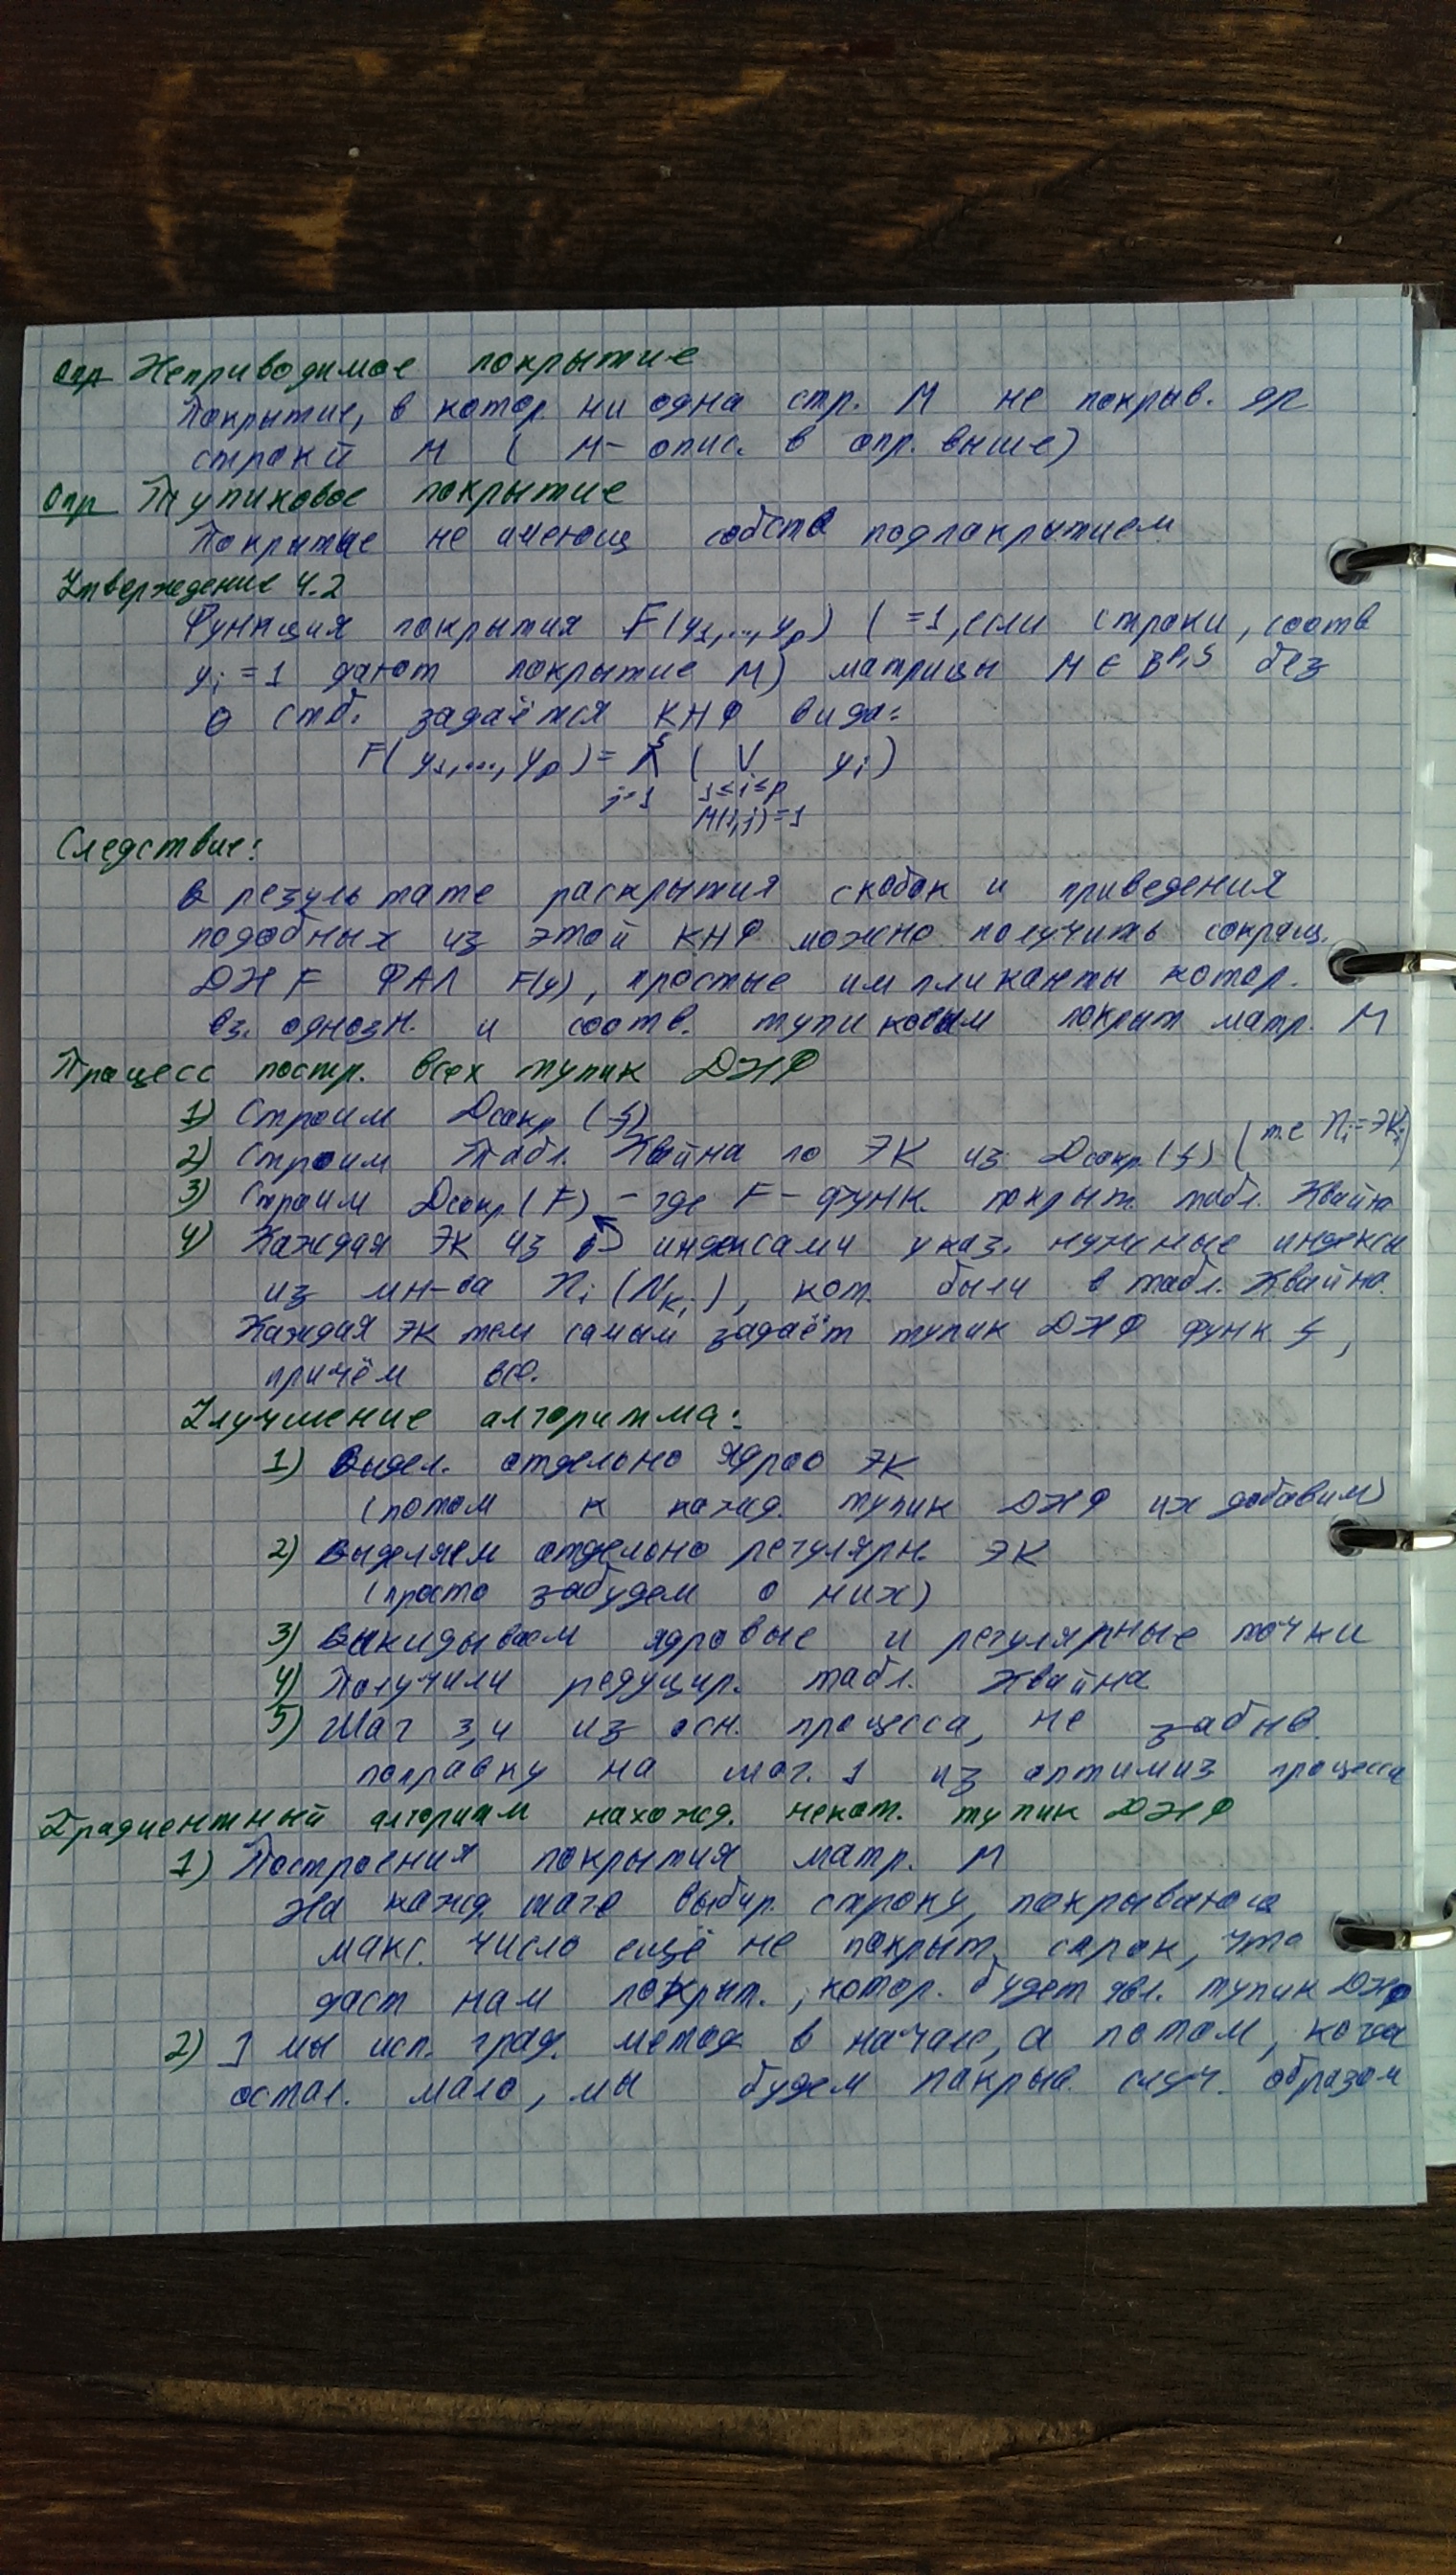 Опр Неприводимое покрытие
Покрытие, в котор ни одна стр. М не покрыв. др
строкй М ( М - опис. в опр. выше)
Опр Тупиковое покрытие
Покрытие не имеющ собств подпокрытием
Утверждение 4.2
Функция покрытия F(y₁,...,yₚ) ( =1, если строки, соотв
yᵢ = 1 дают покрытие М) матрицы M ∈ Bᵖ,ˢ без
0 стб. задаётся КНФ вида:
F( y₁,...,yₚ ) = ⋀ ( ⋁ yᵢ )
j=1 1≤i≤p
M(i,j)=1
Следствие:
В результате раскрытия скобок и приведения
подобных из этой КНФ можно получить сокращ.
ДНF ФАЛ F(y), простые импликанты котор.
вз. однозн. и соотв. тупиковым покрыт матр. М
Процесс постр. всех тупик ДНФ
1) Строим Dсокр (f)
2) Строим Табл. Квайна по ЭК из Dсокр.(f) (т.е Nᵢ = ЭКᵢ)
3) Строим Dсокр(F) - где F - функ. покрыт. табл. Квайна
4) Каждая ЭК из индексами указ. нужные индексы
из мн-ва Nᵢ (Nₖᵢ), кот. были в табл. Квайна.
Каждая ЭК тем самым задаёт тупик ДНФ функ f,
причём все.
Улучшение алгоритма:
1) Выдел. отдельно ядров ЭК
(потом к кажд. тупик ДНФ их добавим)
2) Выделяем отдельно регулярн. ЭК
(просто забудем о них)
3) Выкидываем ядровые и регулярные точки
4) Получили редуцир. табл. Квайна
5) Шаг 3,4 из осн. процесса, не забыв.
поправку на шаг. 1 из оптимиз процесса
Градиентный алгоритм нахожд. некот. тупик ДНФ
1) Построения покрытия матр. М
На кажд. шаге выбир. строку, покрывающ
макс. число ещё не покрыт. строк, что
даст нам покрыт., котор. будет явл. тупик ДНФ
2) ] мы исп. град. метод в начале, а потом, когда
остал. мало, мы будем покрыв. случ. образом